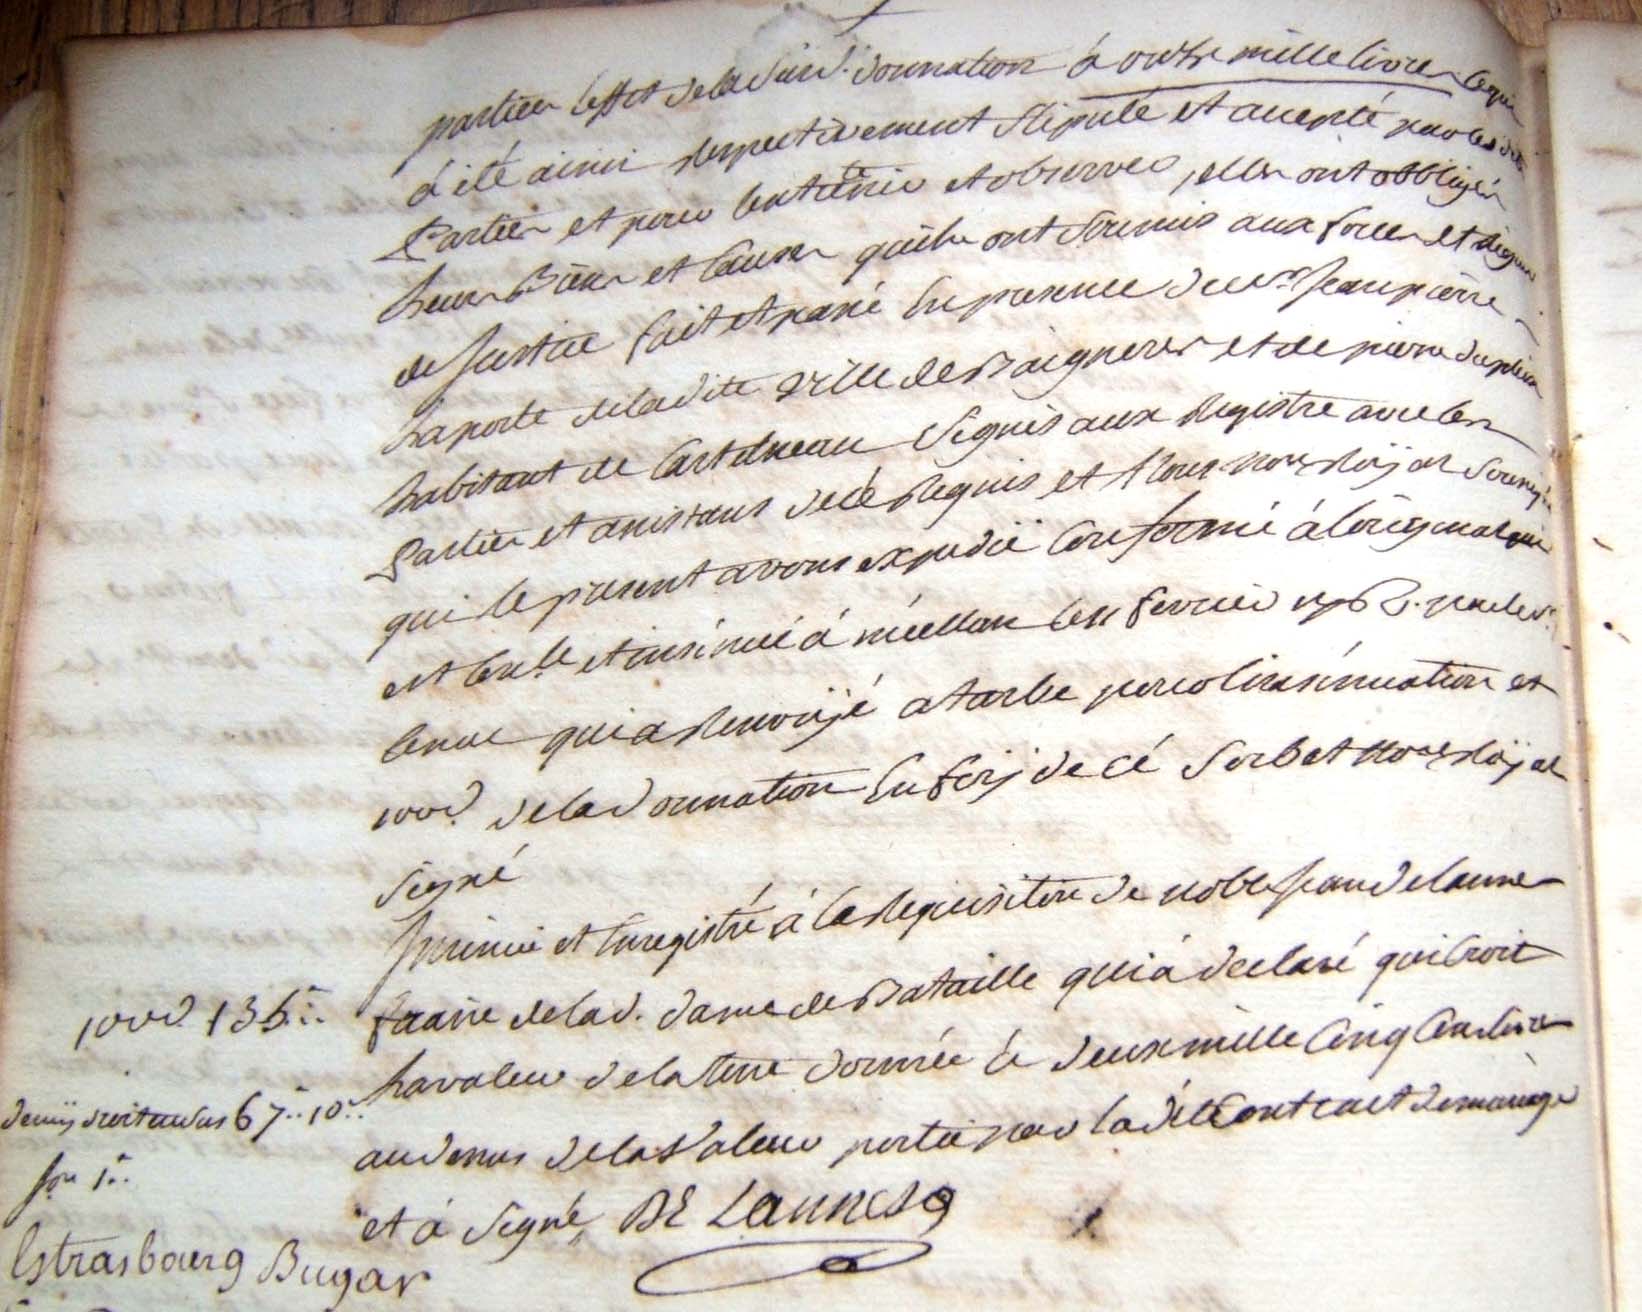 parties leffet delad. donnation à onze mille livres ce qui
à été ainsi respectivement stipulé et accepté par lesd.
Parties et pour lentretenir et observer, elles ont obbligés
leurs Biens et Causes quelles ont Soumis aux forces et rigueurs
de Justice fait et passé En presence de sr. Jean pierre
Laporte deladite ville de Baigneres et de pierre Dupleix
habitant de Castelneau Signés aux Registre avec les
Parties et assistans de ce Requis et Nous nore. Royal Soussigné
qui le present avons expedié Conforme à loriginal qui
est Conlé et insinué à mieellan le 11 fevrier 1762. par le sr.
Cenac qui a Renvoyé a tarbe pour linsinuation et
100d. dela donnation En foy de cé Sorbet Nore Royal
Signé
Insinué et Enregistré à la Requisition de noble Jean delanne
faane delad. dame de Bataille qui à declaré quil croit
La valeur dela terre donnée à deux mille Cinq Cens livres
au dessus dela Valeur portée par ladite Contract de mariage
et à Signé, DE Lannes
100d. 135
demy droit au sus 67.. 10
son 1
Estrasbourg Bugar